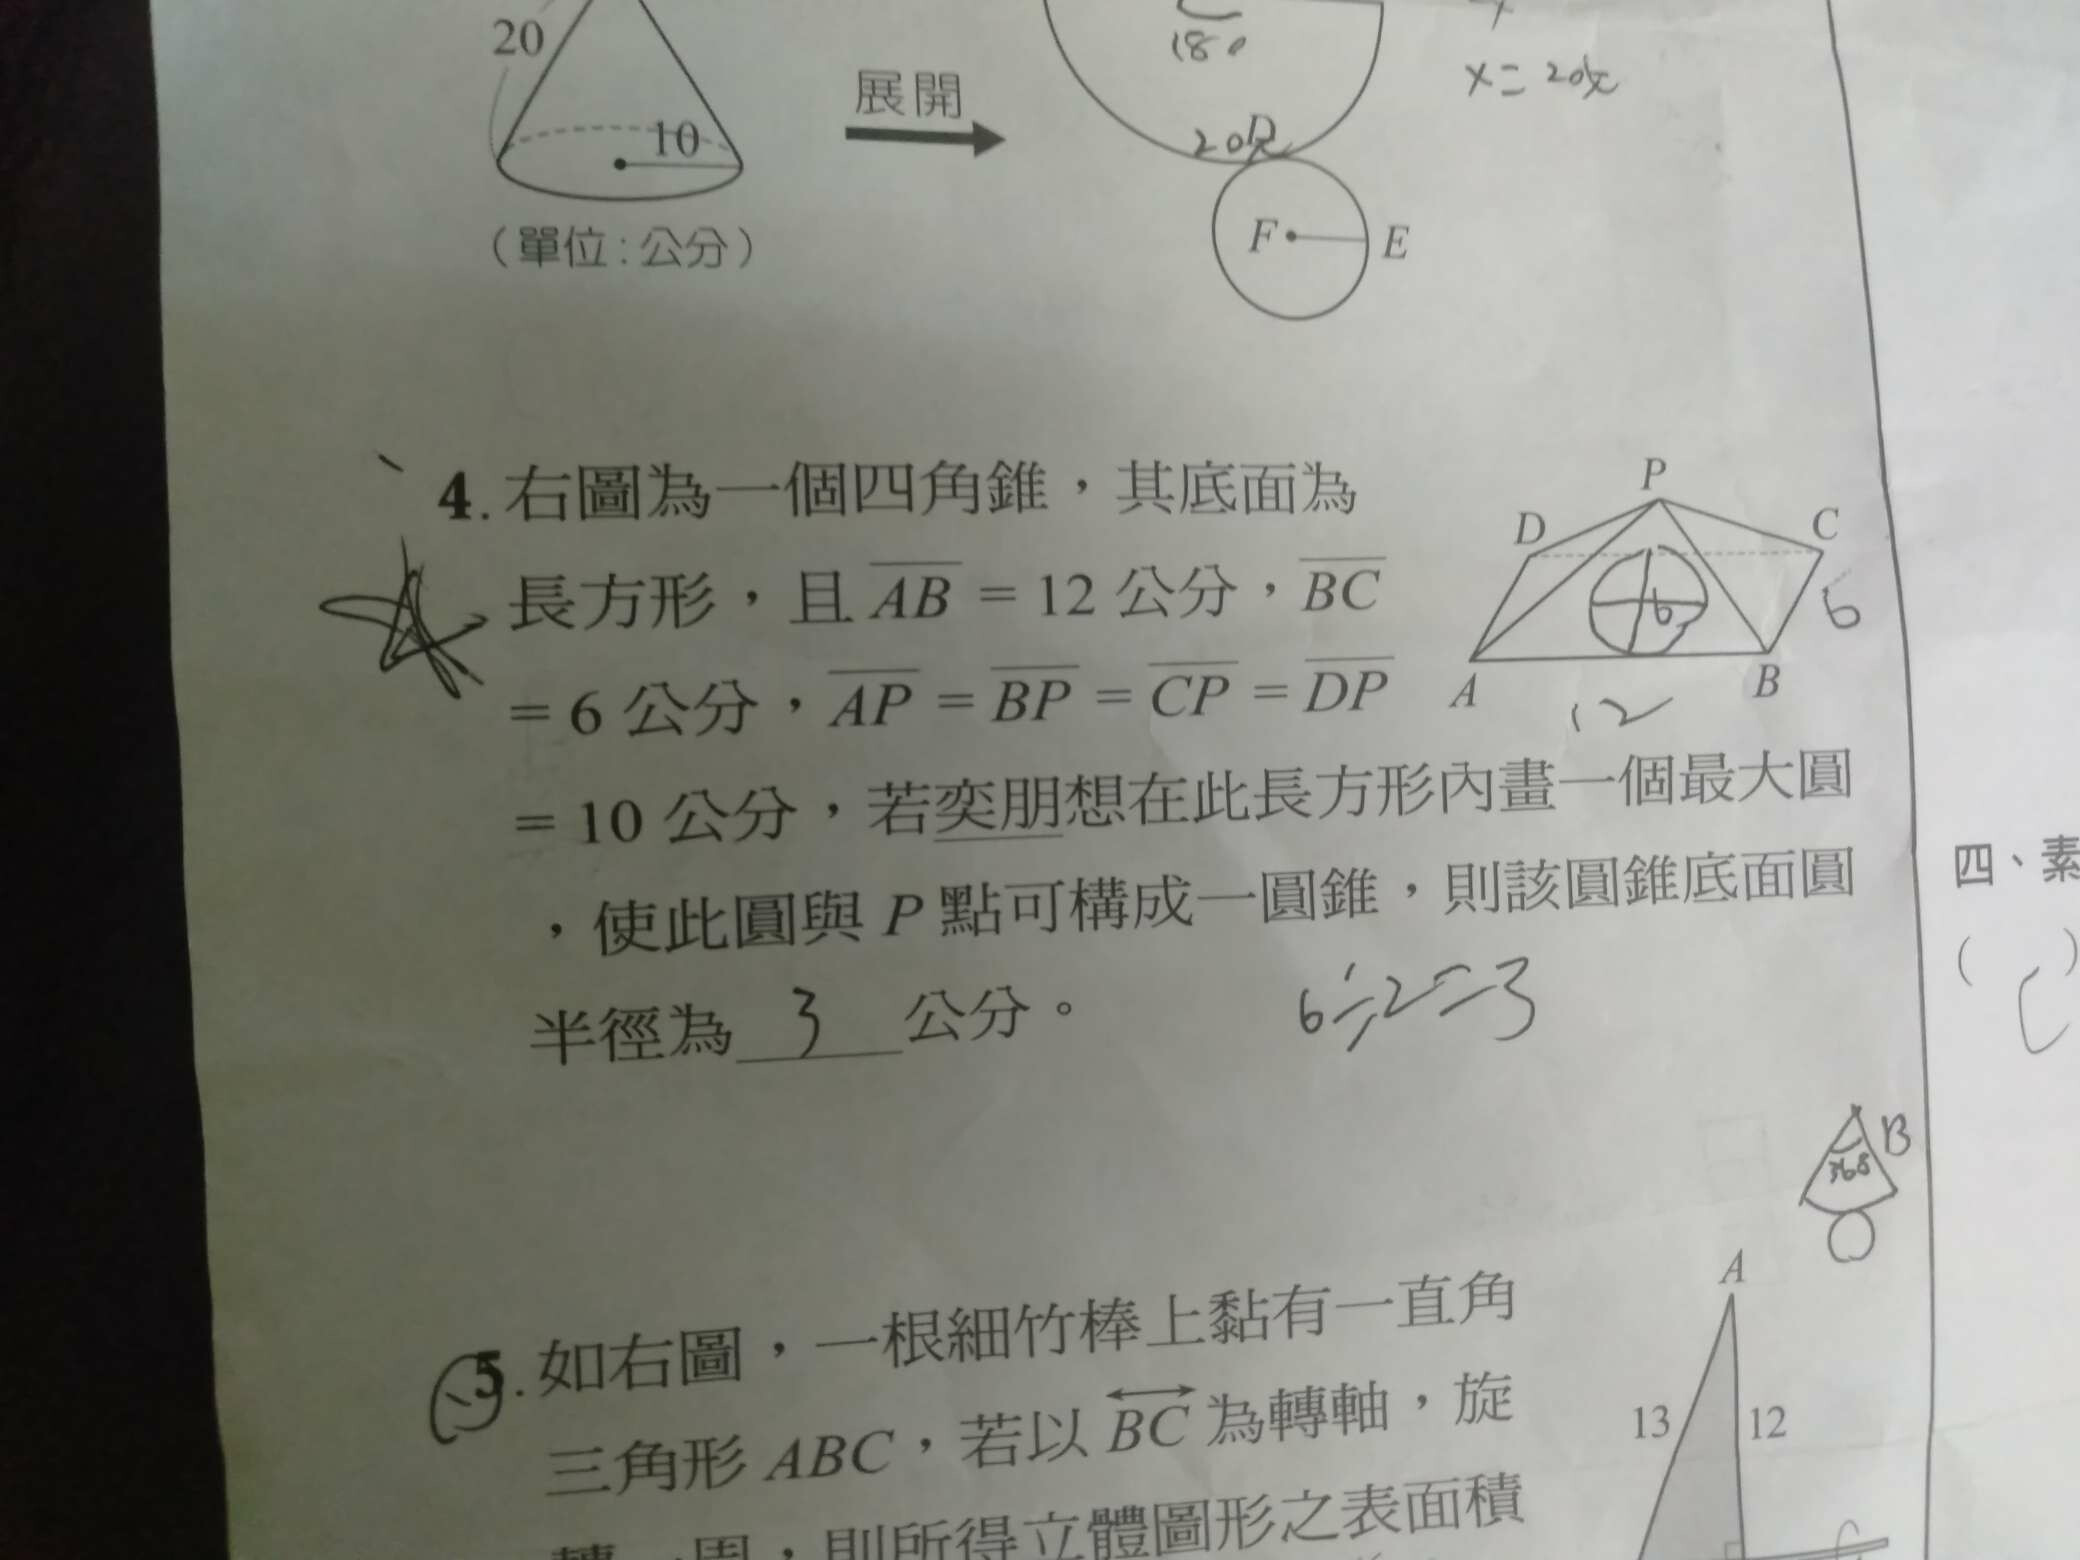 20
10
展開
180
x = 20π
20π
D
F
E
(單位:公分)
4.右圖為一個四角錐,其底面為
長方形,且AB=12公分,BC
=6公分,AP=BP=CP=DP
=10公分,若奕朋想在此長方形內畫一個最大圓
,使此圓與P點可構成一圓錐,則該圓錐底面圓
半徑為 3 公分。
6÷2=3
P
D
C
6
6
A
B
12
四、素
( )
B
5.如右圖,一根細竹棒上黏有一直角
三角形ABC,若以BC為轉軸,旋
轉一周,則所得立體圖形之表面積
A
13
12